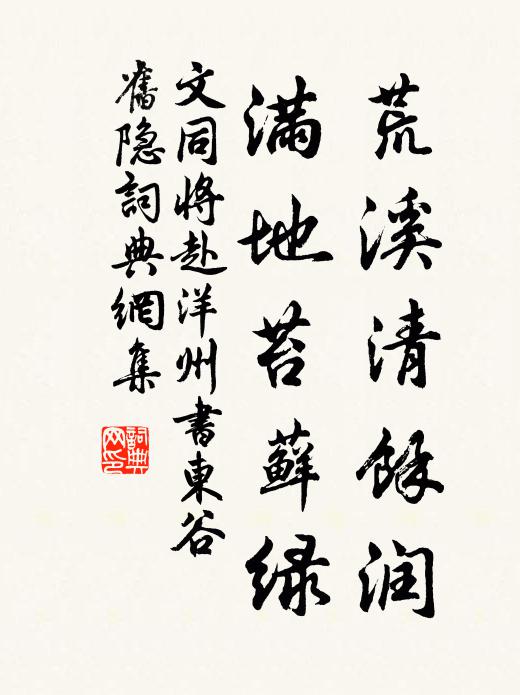 荒溪清餘润
满地苔蘚绿
文同將赴洋州書東谷
舊隐詞典網集
詞典网印